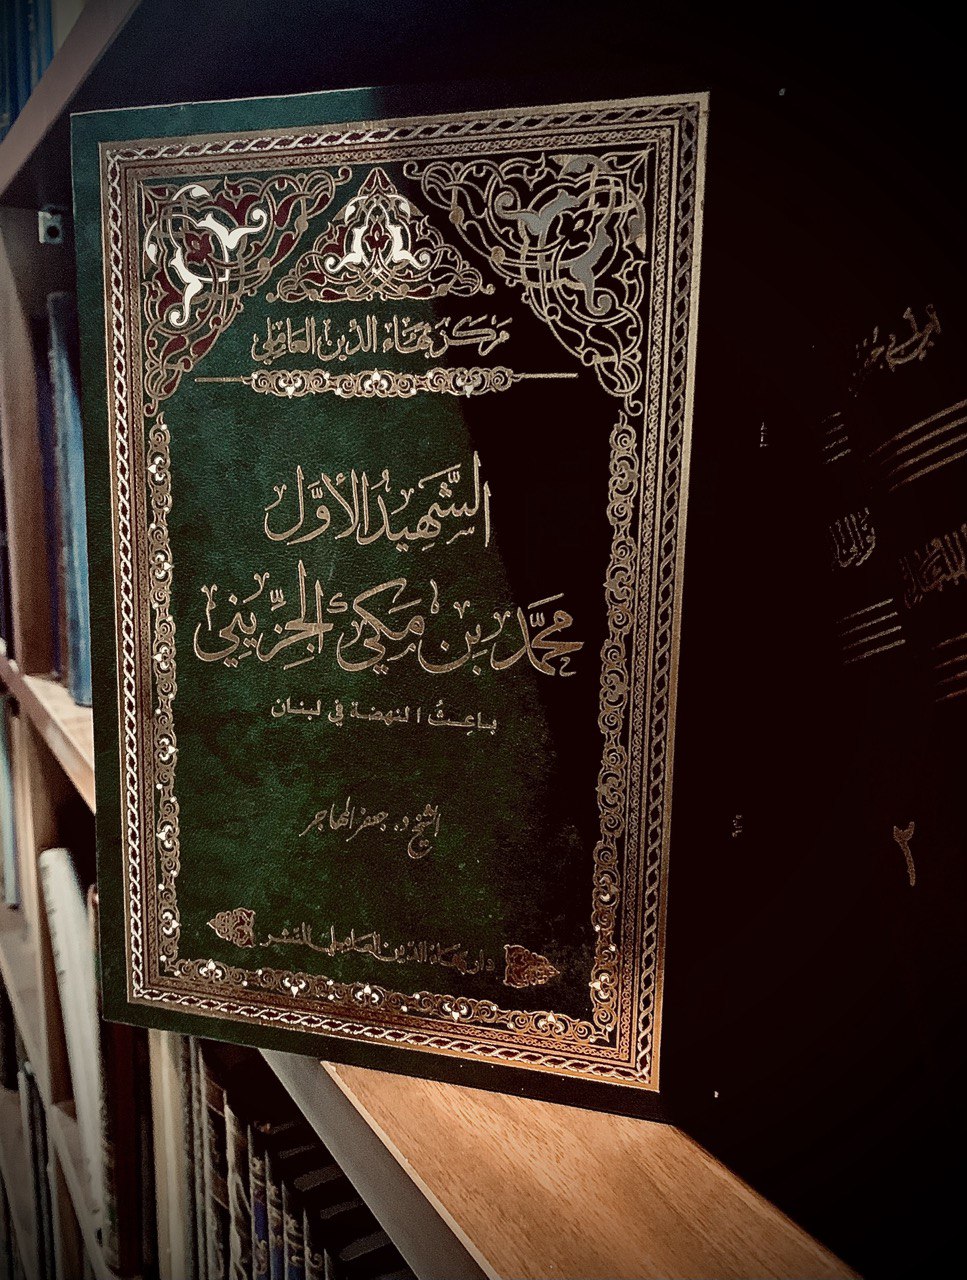 مركز بهاء الدين العاملي
الشَّهِيدُ الأوَّل
محمَّد بن مَكّي الجِزِّيني
باعِثُ النهضة في لبنان
الشيخ د. جعفر المهاجر
دار بهاء الدين العاملي للنشر
٢